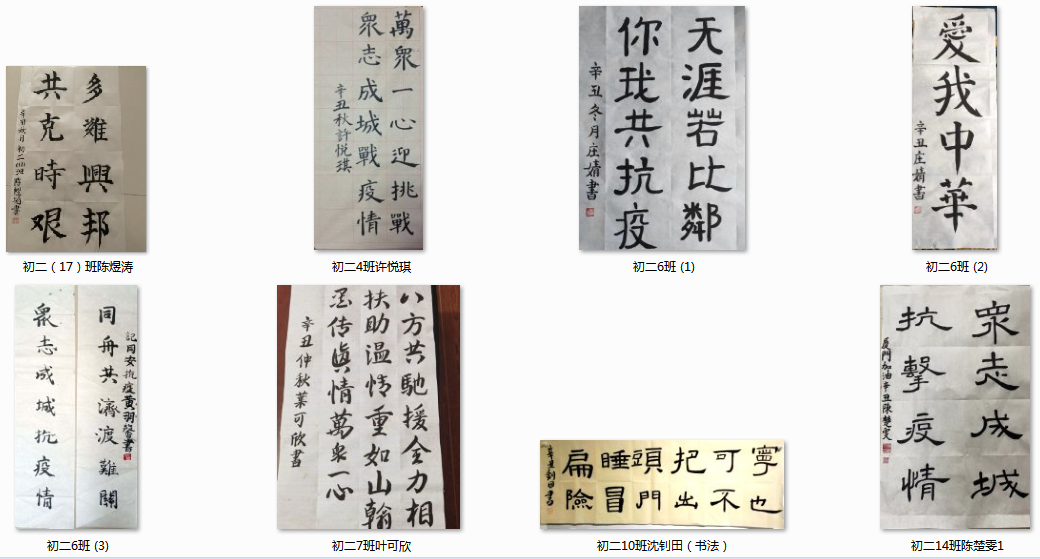 多難興邦
共克時艱
初二（17）班陈煜涛
萬衆一心迎挑戰
衆志成城戰疫情
辛丑秋許悦琪
初二4班许悦琪
天涯若比鄰
你我共抗疫
辛丑冬月庄婧書
初二6班 (1)
愛我中華
辛丑庄婧書
初二6班 (2)
記同安抗疫黄羽馨書
同舟共濟渡難關
衆志成城抗疫情
初二6班 (3)
八方共馳援全力相
扶助温情重如山翰
墨传真情萬众一心
辛丑仲秋葉可欣書
初二7班叶可欣
寧可把頭睡扁
也不出門冒險
辛丑釗田書
初二10班沈钊田（书法）
眾志成城
抗擊疫情
厦門加油辛丑陳楚雯
初二14班陈楚雯1